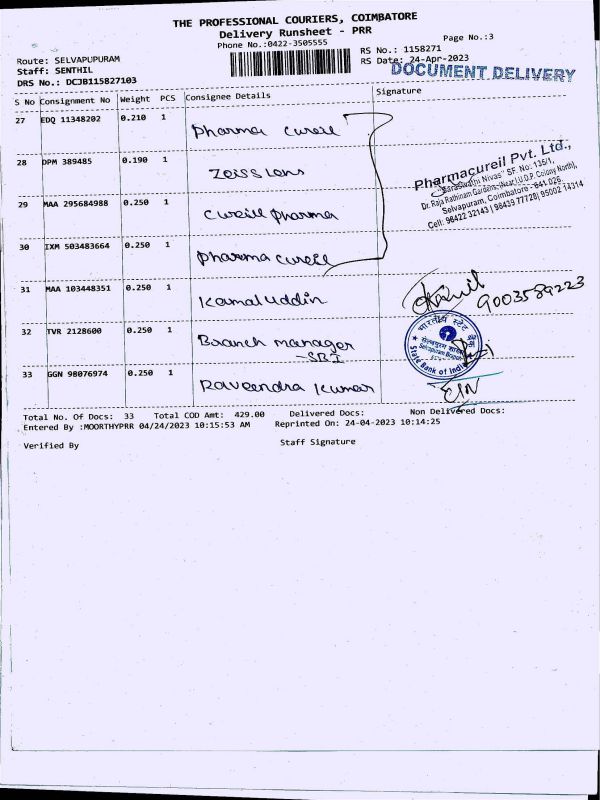 THE PROFESSIONAL COURIERS, COIMBATORE
Delivery Runsheet - PRR
Phone No.:0422-3505555
Page No.:3
Route: SELVAPUPURAM
RS No.: 1158271
Staff: SENTHIL
RS Date: 24-Apr-2023
DRS No.: DCJB115827103
DOCUMENT DELIVERY
S No Consignment No Weight PCS Consignee Details Signature
27 EDQ 11348202 0.210 1 Pharma cureil
28 DPM 389485 0.190 1 Zeiss lens
Pharmacureil Pvt. Ltd.,
"Saraswathi Nivas" SF. No: 135/1,
Dr. Raja Rathinam Gardens, (Near) U.D.P. Colony North),
Selvapuram, Coimbatore - 641 026.
Cell: 98422 32143 | 98439 77728| 95002 14314
29 MAA 295684988 0.250 1 Cureill pharma
30 IXM 503483664 0.250 1 Pharma cureil
31 MAA 103448351 0.250 1 Kamaluddin
9003589223
32 TVR 2128600 0.250 1 Branch manager
-SBI
भारतीय स्टेट
State Bank of India
33 GGN 98076974 0.250 1 Raveendra Kumar
Total No. Of Docs: 33 Total COD Amt: 429.00 Delivered Docs: Non Delivered Docs:
Entered By :MOORTHYPRR 04/24/2023 10:15:53 AM Reprinted On: 24-04-2023 10:14:25
Verified By Staff Signature